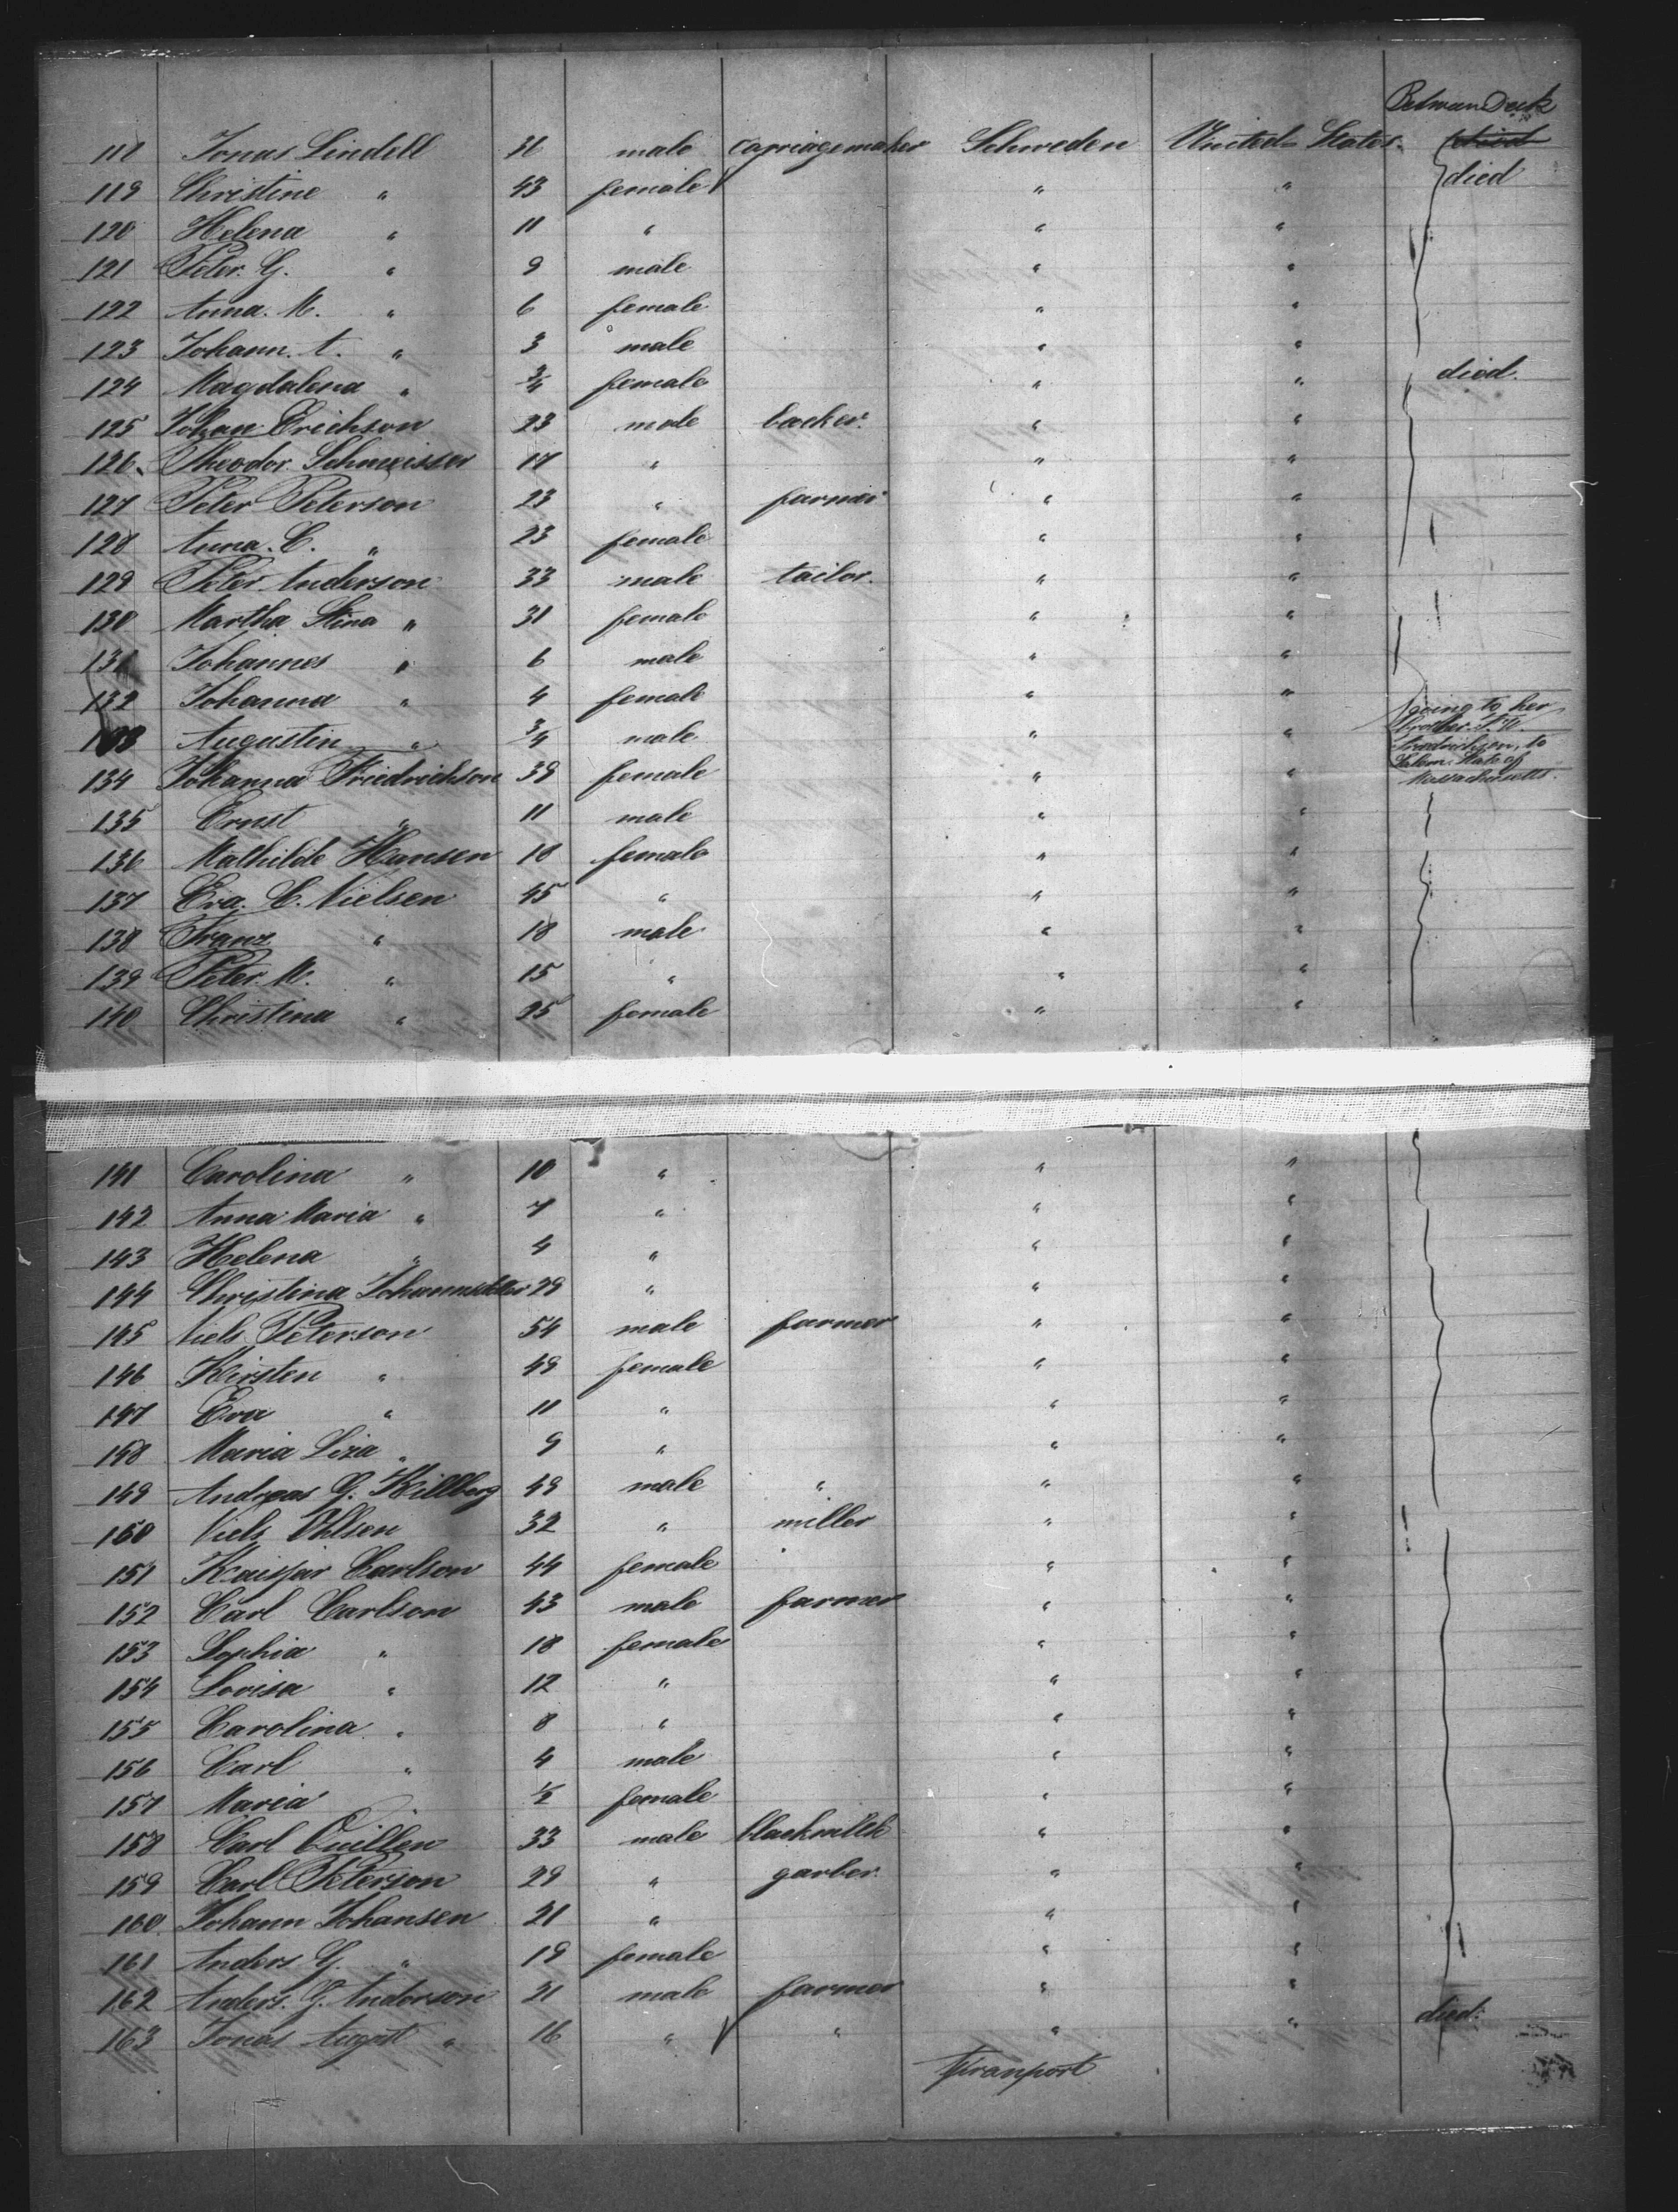 Between Deck
118 Jonas Lindell 31 male carriagemaker Schweden United States died
119 Christine " 43 female " " died
120 Helena " 11 " " "
121 Peter G. " 9 male " "
122 Anna M. " 6 female " "
123 Johann A. " 3 male " "
124 Magdalena " 3/4 female " " died.
125 Johan Erichson 23 male backer. " "
126 Theodor Schmeisser 17 " " "
127 Peter Peterson 23 " farmer " "
128 Anna C. " 23 female " "
129 Peter Anderson 33 male tailor. " "
130 Martha Stina " 31 female " "
131 Johannes " 6 male " "
132 Johanna " 4 female " "
133 Augustin " 3/4 male " "
going to her
brother
Friedrichson, to
Salem State of
Massachusetts.
134 Johanna Friedrichson 39 female " "
135 Ernst " 11 male " "
136 Mathilde Hansen 18 female " "
137 Eva C. Nielsen 45 " " "
138 Franz " 18 male " "
139 Peter M. " 15 " " "
140 Christina " 25 female " "
141 Carolina " 10 " " "
142 Anna Maria " 7 " " "
143 Helena " 4 " " "
144 Christina 29 " " "
145 Niels Peterson 54 male farmer " "
146 Kirsten " 49 female " "
147 Eva " 11 " " "
148 Maria Liza " 9 " " "
149 Andreas G. Killberg 49 male " " "
150 Niels Ohlsen 32 " miller " "
151 Carlson 44 female " "
152 Carl Carlson 43 male farmer " "
153 Sophia " 18 female " "
154 Lovisa " 12 " " "
155 Carolina " 8 " " "
156 Carl " 4 male " "
157 Maria " 1/2 female " "
158 Carl Quillen 33 male " "
159 Carl Peterson 29 " garber. " "
160 Johann Johansen 21 " " "
161 Anders G. " 19 female " "
162 Anders. G. Anderson 21 male farmer " "
163 Jonas August " 16 " " " " died.
Transport